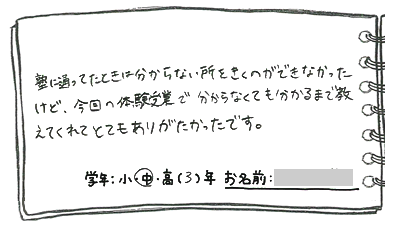 塾に通ってたときは分からない所をきくのができなかった
けど、今回の体験授業で分からなくても分かるまで教
えてくれてとてもありがたかったです。
学年:小・中・高(3)年 お名前: